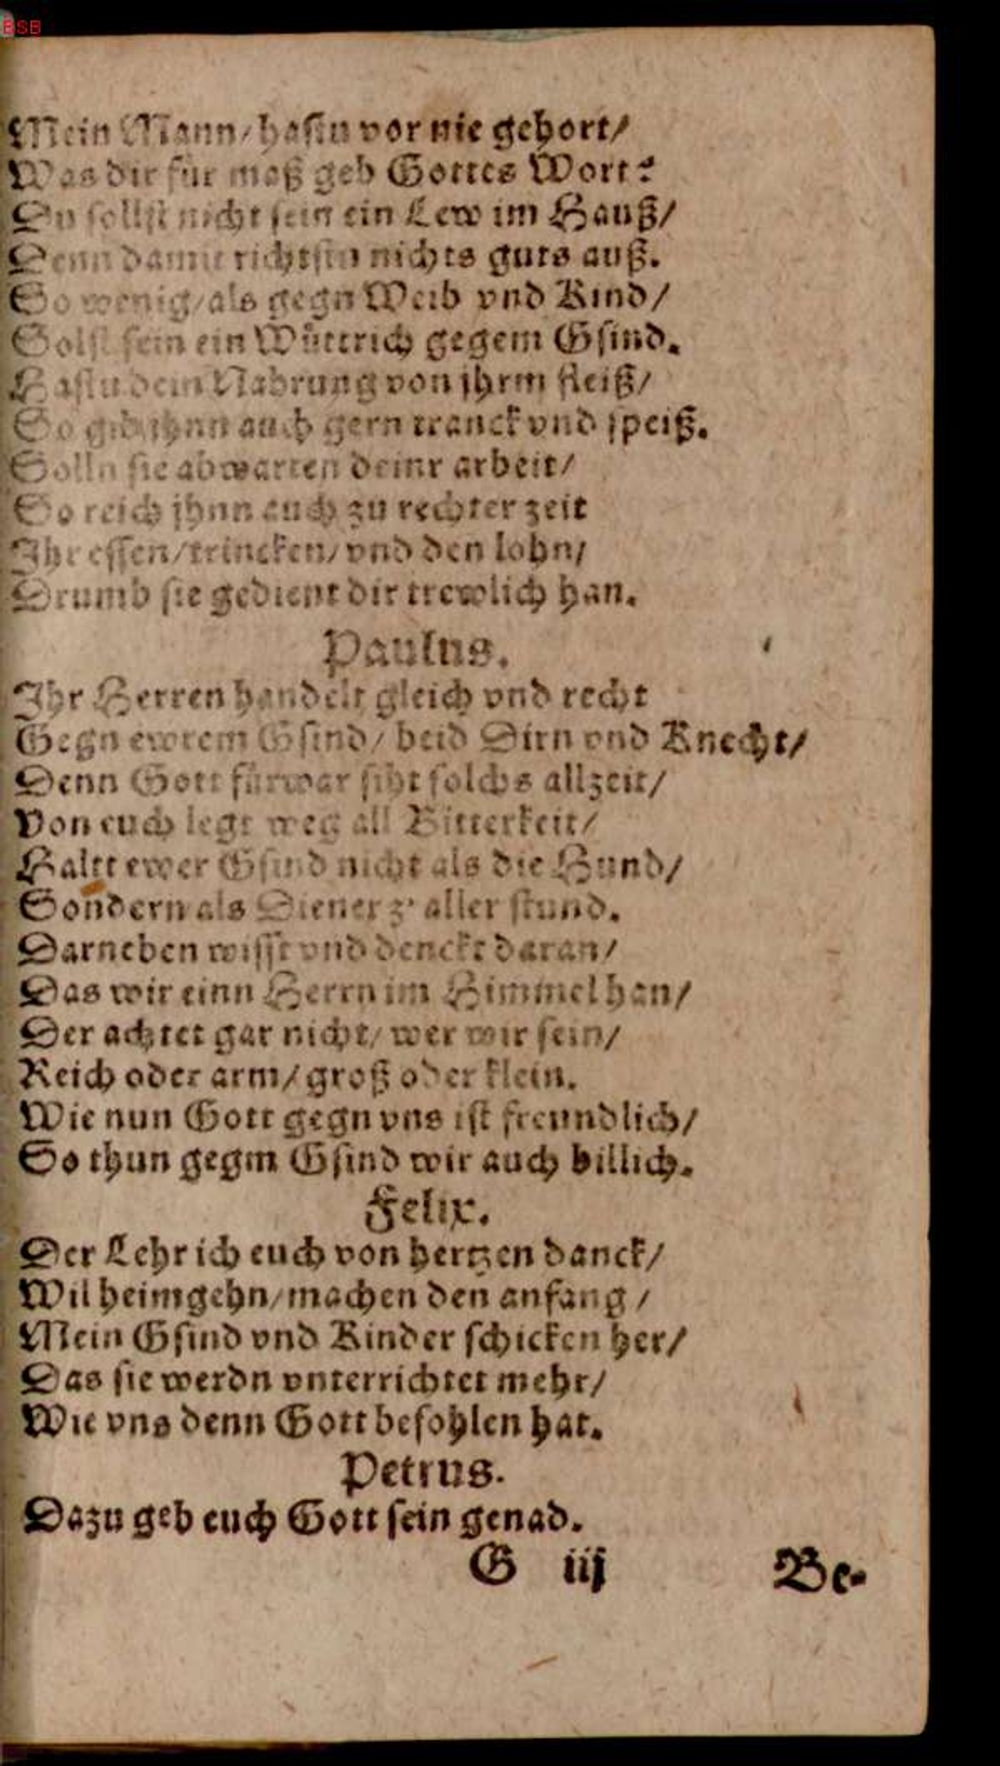 BSB
Mein Mann/hastu vor nie gehort/
Was dir für maß geb Gottes Wort?
Du sollst nicht sein ein Lew im Hauß/
Denn damit richtstu nichts guts auß.
So wenig/als gegn Weib vnd Kind/
Solst sein ein Wüttrich gegem Gsind.
Hastu dein Nahrung von jhrm fleiß/
So gib jhnn auch gern tranck vnd speiß.
Solln sie abwarten deinr arbeit/
So reich jhnn auch zu rechter zeit
Ihr essen/trincken/vnd den lohn/
Drumb sie gedient dir trewlich han.
Paulus.
Ihr Herren handelt gleich vnd recht
Gegn ewrem Gsind/ beid Dirn vnd Knecht/
Denn Gott fürwar siht solchs allzeit/
Von euch legt weg all Bitterkeit/
Haltt ewer Gsind nicht als die Hund/
Sondern als Diener z' aller stund.
Darneben wisst vnd denckt daran/
Das wir einn Herrn im Himmel han/
Der achtet gar nicht/ wer wir sein/
Reich oder arm/groß oder klein.
Wie nun Gott gegn vns ist freundlich/
So thun gegm Gsind wir auch billich.
Felix.
Der Lehr ich euch von hertzen danck/
Wil heimgehn/machen den anfang/
Mein Gsind vnd Kinder schicken her/
Das sie werdn vnterrichtet mehr/
Wie vns denn Gott befohlen hat.
Petrus.
Dazu geb euch Gott sein genad.
G iij Be-